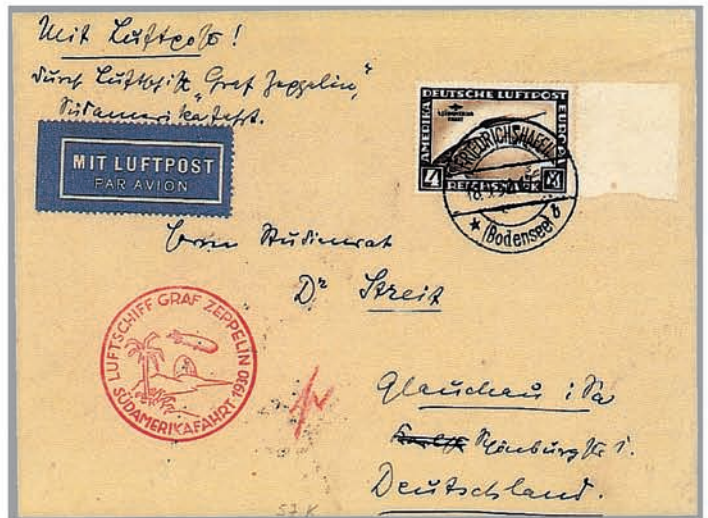 Mit Luftpost!
Durch Luftschiff „Graf Zeppelin"
Südamerikafahrt.
MIT LUFTPOST
PAR AVION
DEUTSCHE LUFTPOST
AMERIKA
EUROPA
SÜDAMERIKA
FAHRT
4 REICHSMARK
FRIEDRICHSHAFEN
(Bodensee)
b
Herrn Studienrat
Dr Streit
LUFTSCHIFF GRAF ZEPPELIN
SÜDAMERIKAFAHRT 1930
Glauchau i/Sa
Schönburgstr 1.
Deutschland.
57 K